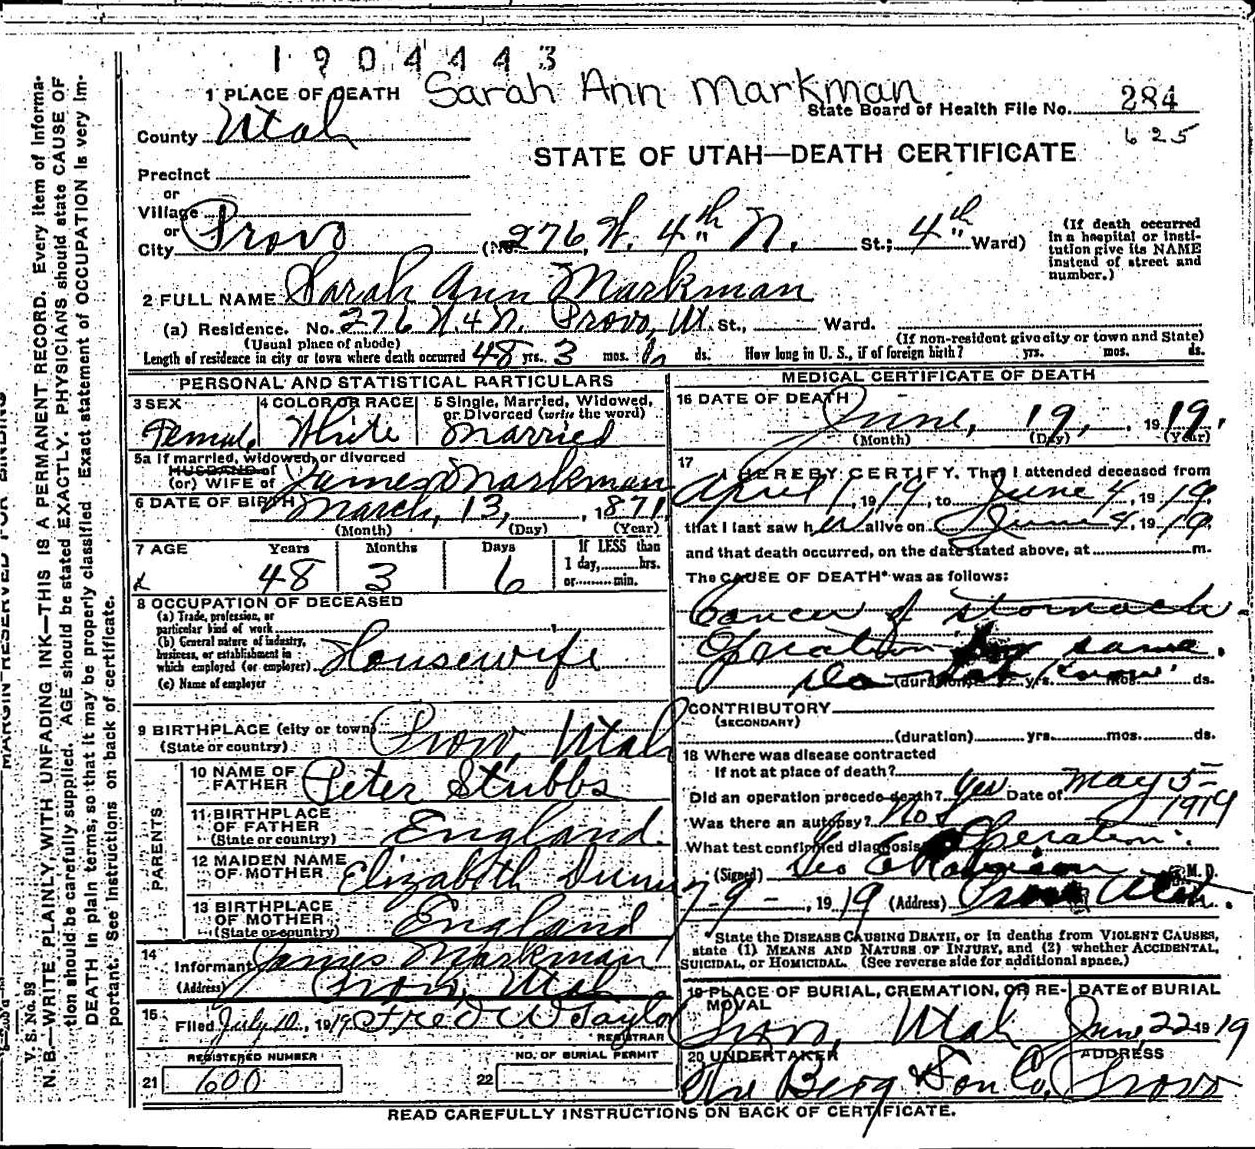 1904443
Sarah Ann Markman
1 PLACE OF DEATH
State Board of Health File No. 284
625
County Utah
STATE OF UTAH—DEATH CERTIFICATE
Precinct
or
Village
or
City Provo (No. 276 W. 4th N. St.; 4th Ward)
(If death occurred in a hospital or institution give its NAME instead of street and number.)
2 FULL NAME Sarah Ann Markman
(a) Residence. No. 276 W. 4 N. Provo, Ut. St., Ward.
(Usual place of abode) (If non-resident give city or town and State)
Length of residence in city or town where death occurred 48 yrs. 3 mos. 6 ds. How long in U. S., if of foreign birth? yrs. mos. ds.
PERSONAL AND STATISTICAL PARTICULARS
3 SEX Female
4 COLOR OR RACE White
5 Single, Married, Widowed, or Divorced (write the word) Married
5a If married, widowed, or divorced
HUSBAND of
(or) WIFE of James Markman
6 DATE OF BIRTH March, 13, 1871
(Month) (Day) (Year)
7 AGE Years Months Days If LESS than
1 day, hrs.
or min.
48 3 6
8 OCCUPATION OF DECEASED
(a) Trade, profession, or
particular kind of work
(b) General nature of industry,
business, or establishment in
which employed (or employer) Housewife
(c) Name of employer
9 BIRTHPLACE (city or town) Provo, Utah
(State or country)
PARENTS
10 NAME OF FATHER Peter Stubbs
11 BIRTHPLACE OF FATHER England.
(State or country)
12 MAIDEN NAME OF MOTHER Elizabeth Dunn
13 BIRTHPLACE OF MOTHER England
(State or country)
14
Informant James Markman
(Address) Provo, Utah
15
Filed July 10, 1919 Fred W Taylor
REGISTRAR
REGISTERED NUMBER
21 600
NO. OF BURIAL PERMIT
22
MEDICAL CERTIFICATE OF DEATH
16 DATE OF DEATH June, 19, 1919.
(Month) (Day) (Year)
17
I HEREBY CERTIFY, That I attended deceased from
April 1, 1919, to June 4, 1919,
that I last saw her alive on June 4, 1919.
and that death occurred, on the date stated above, at m.
The CAUSE OF DEATH* was as follows:
Cancer of stomach.
Operation for same.
Do not know
(duration) yrs. mos. ds.
CONTRIBUTORY
(SECONDARY)
(duration) yrs. mos. ds.
18 Where was disease contracted
If not at place of death?
Did an operation precede death? Yes Date of May 5 1919
Was there an autopsy? No
What test confirmed diagnosis Operation.
(Signed) Geo E Robison M. D.
7-9-, 1919 (Address) Provo Utah.
State the DISEASE CAUSING DEATH, or in deaths from VIOLENT CAUSES,
state (1) MEANS AND NATURE OF INJURY, and (2) whether ACCIDENTAL,
SUICIDAL, or HOMICIDAL. (See reverse side for additional space.)
19 PLACE OF BURIAL, CREMATION, OR REMOVAL Provo, Utah
DATE of BURIAL June, 22 1919
20 UNDERTAKER The Berg & Son Co,
ADDRESS Provo
READ CAREFULLY INSTRUCTIONS ON BACK OF CERTIFICATE.
MARGIN RESERVED FOR BINDING
V. S. No. 93
N. B.—WRITE PLAINLY, WITH UNFADING INK—THIS IS A PERMANENT RECORD. Every item of informa-
tion should be carefully supplied. AGE should be stated EXACTLY. PHYSICIANS should state CAUSE OF
DEATH in plain terms, so that it may be properly classified. Exact statement of OCCUPATION is very im-
portant. See instructions on back of certificate.